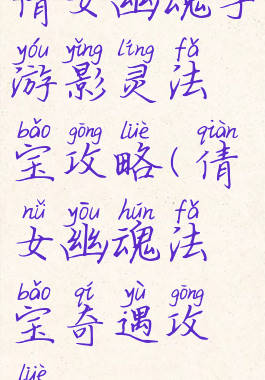 倩女幽魂手
yóu yǐng líng fǎ
游影灵法
bǎo gōng lüè qiàn
宝攻略(倩
nǚ yōu hún fǎ
女幽魂法
bǎo qí yù gōng
宝奇遇攻
lüè